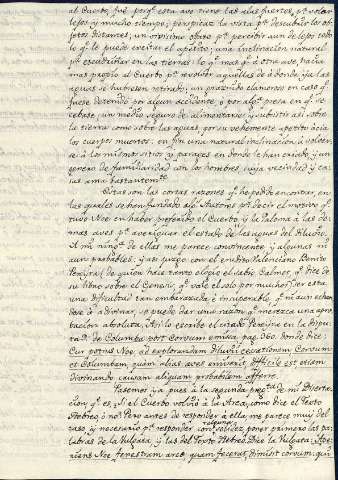 al Cuerbo, fué, porqe esta ave tiene las alas fuertes, pa volar
lejos y mucho tiempo; perspicaz la vista pa descubrir los ob-
jetos distantes; un vivisimo olfato pa percibir aun de lejos todo
lo qe le puede excitar el apetito; una inclinacion natural
pa escudriñar en las tierras lo qe mas qe à otra ave, hacia
mas propio al Cuerbo pa revolver aquellas de à donde ya las
aguas se hubiesen retirado; un graznido clamoroso en caso qe
fuese detenido por algun accidente, o por alga presa en qe se
cebase; un medio seguro de alimentarse y subsistir asi sobre
la tierra como sobre las aguas, por su vehemente apetito àcia
los cuerpos muertos: en fin una natural inclinacion à volver-
se à los mismos sitios y parages en donde le han criado, y un
genero de familiaridad con los hombres cuya vecindad y ca-
sas ama bastantemte
Estas son las cortas razones qe he podido encontrar, en
las quales se han fundado algs Autores pa decir el motivo qe
tuvo Noe en haber preferido el Cuerbo y la Paloma à las de-
mas aves pa averiguar el estado de las aguas del Diluvio.
A mi ninga de ellas me parece convincente y algunas ni
aun probables; y asi juzgo con el erudito Valenciano Benito
Pereyra (de quien hace tanto elogio el sabio Calmet, qe dice de
su libro sobre el Genesis, qe vale el solo por muchos) ser esta
una dificultad tan embarazada è insuperable, qe ni aun echan-
dose à adivinar, se puede dar una razon qe merezca una apro-
bacion absoluta. Asi lo escribe el citado Pereyra en la Dispu-
ta de Columba post Corvum emissa, pag. 360. donde dice:
Cur potius Noe, ad explorandam Diluvii cessationem Corvum
et Columbam, quam alias aves emiserit, difficile est etiam
divinando causam aliquam probabilem afferre.
Pasemos ya pues à la segunda parte de mi Diserta-
cion, qe es, si el Cuerbo volviò à la Arca, como dice el Texto
Hebreo, ò no? Pero antes de responder à ella, me parece muy del
caso y necesario pa responder con solidez, poner primero las pa-
labras de la Vulgata, y las del Texto Hebreo. Dice la Vulgata: Ape-
riens Noe fenestram arcæ quam fecerat, dimisit corvum: qui